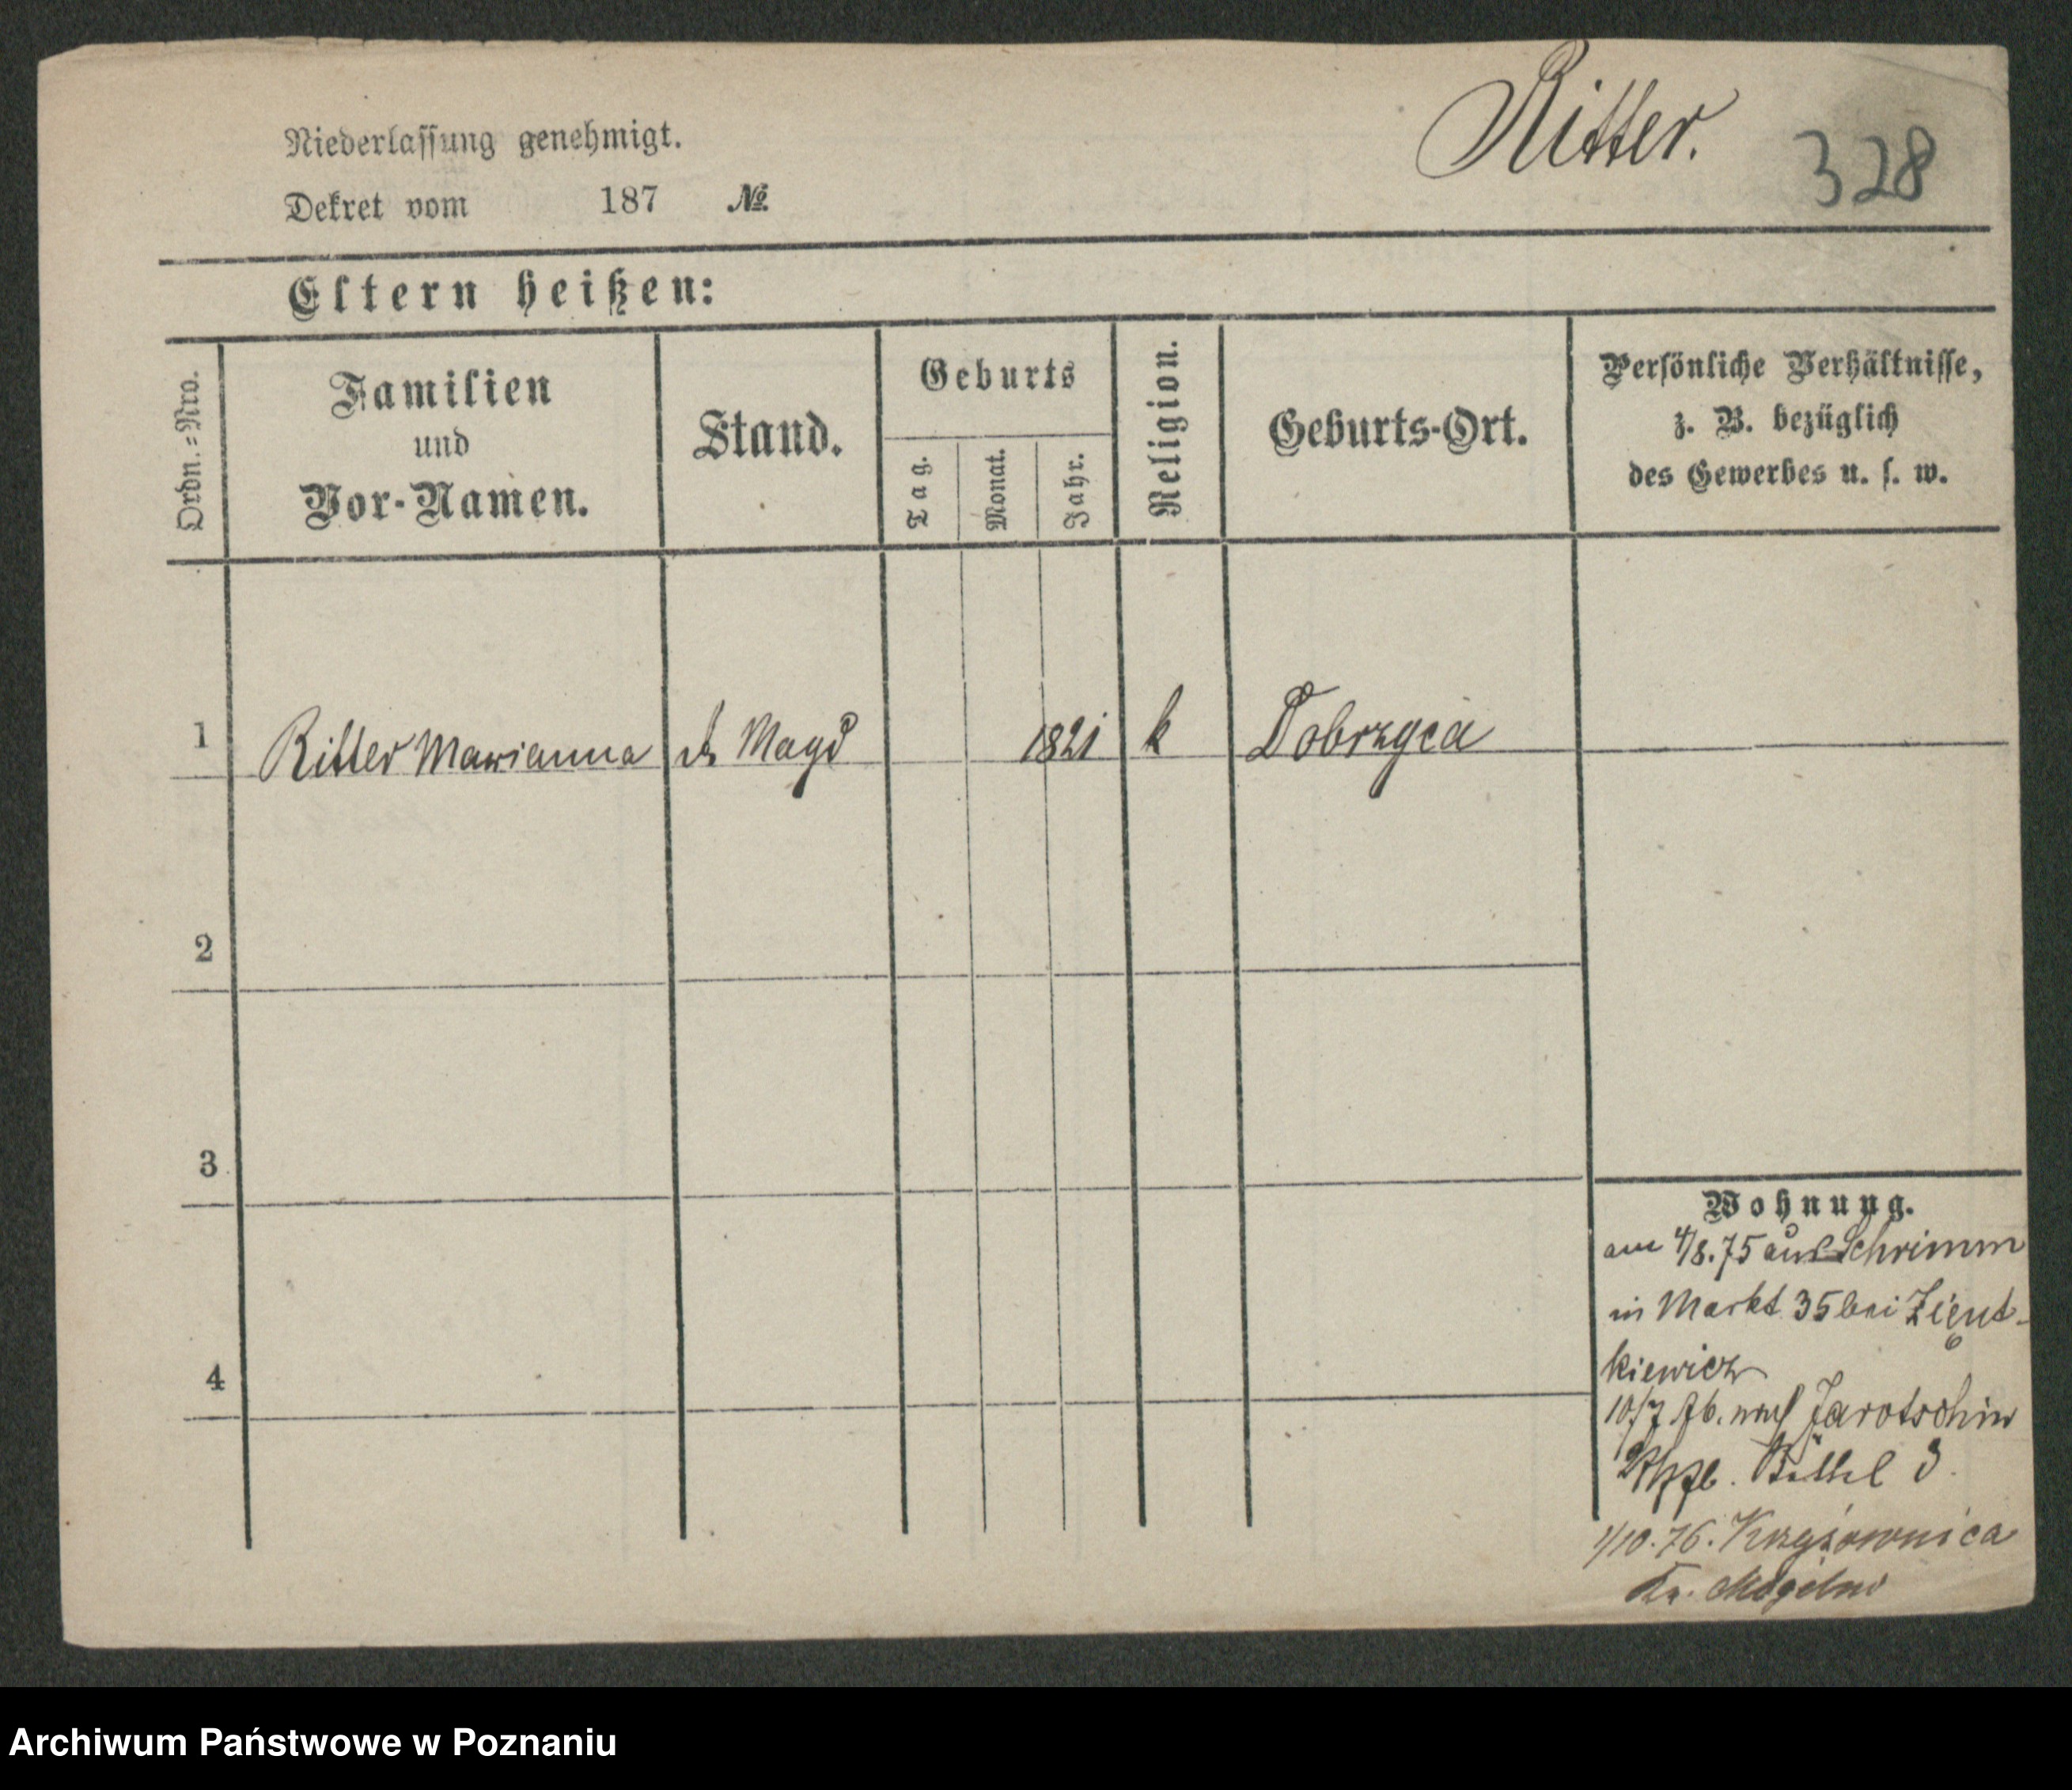 Ritter.
328
Niederlassung genehmigt.
Dekret vom 187 №
Eltern heißen:
Ordn.=Nro.
Familien
und
Vor-Namen.
Stand.
Geburts
Tag.
Monat.
Jahr.
Religion.
Geburts-Ort.
Persönliche Verhältnisse,
z. B. bezüglich
des Gewerbes u. s. w.
1 Ritter Marianna Magd 1821 k Dobrzyca
2
3
4
Wohnung.
am 4/8.75 aus Schrimm
in Markt 35 bei Zięnt-
kiewicz
10/7 76. nach Jarotschin
3.
1/10.76. Krzyżownica
Kr. Mogilno
Archiwum Państwowe w Poznaniu